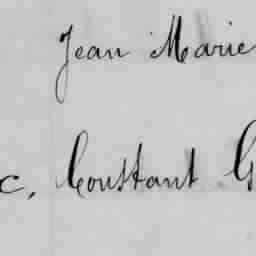 Jean Marie
c, Constant G